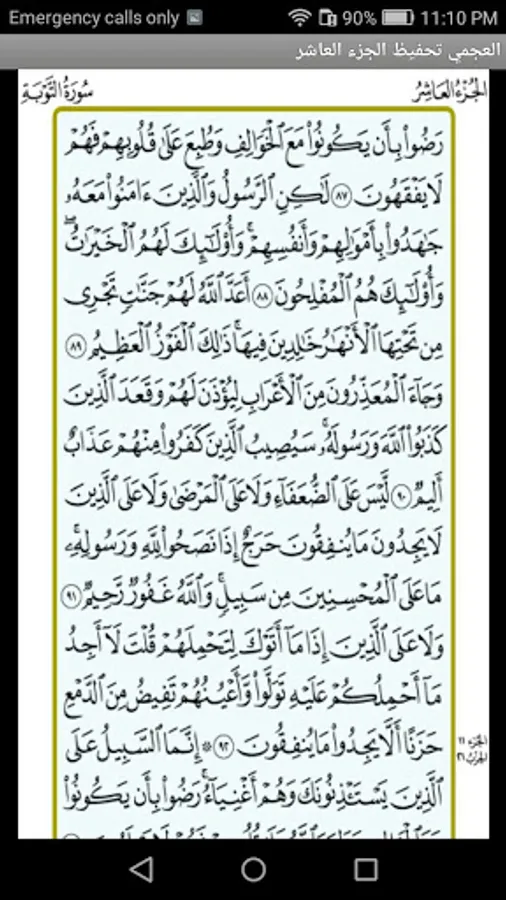 Emergency calls only 90% 11:10 PM
العجمي تحفيظ الجزء العاشر
الجُزءُ العَاشِرُ سُورَةُ التَّوْبَةِ
رَضُواْ بِأَن يَكُونُواْ مَعَ ٱلْخَوَالِفِ وَطُبِعَ عَلَىٰ قُلُوبِهِمْ فَهُمْ
لَا يَفْقَهُونَ ٨٧ لَٰكِنِ ٱلرَّسُولُ وَٱلَّذِينَ ءَامَنُواْ مَعَهُۥ
جَٰهَدُواْ بِأَمْوَٰلِهِمْ وَأَنفُسِهِمْۚ وَأُوْلَٰٓئِكَ لَهُمُ ٱلْخَيْرَٰتُۖ
وَأُوْلَٰٓئِكَ هُمُ ٱلْمُفْلِحُونَ ٨٨ أَعَدَّ ٱللَّهُ لَهُمْ جَنَّٰتٍ تَجْرِى
مِن تَحْتِهَا ٱلْأَنْهَٰرُ خَٰلِدِينَ فِيهَاۚ ذَٰلِكَ ٱلْفَوْزُ ٱلْعَظِيمُ ٨٩
وَجَآءَ ٱلْمُعَذِّرُونَ مِنَ ٱلْأَعْرَابِ لِيُؤْذَنَ لَهُمْ وَقَعَدَ ٱلَّذِينَ
كَذَبُواْ ٱللَّهَ وَرَسُولَهُۥۚ سَيُصِيبُ ٱلَّذِينَ كَفَرُواْ مِنْهُمْ عَذَابٌ
أَلِيمٌ ٩٠ لَّيْسَ عَلَى ٱلضُّعَفَآءِ وَلَا عَلَى ٱلْمَرْضَىٰ وَلَا عَلَى ٱلَّذِينَ
لَا يَجِدُونَ مَا يُنفِقُونَ حَرَجٌ إِذَا نَصَحُواْ لِلَّهِ وَرَسُولِهِۦۚ
مَا عَلَى ٱلْمُحْسِنِينَ مِن سَبِيلٍۚ وَٱللَّهُ غَفُورٌ رَّحِيمٌ ٩١
وَلَا عَلَى ٱلَّذِينَ إِذَا مَآ أَتَوْكَ لِتَحْمِلَهُمْ قُلْتَ لَآ أَجِدُ
مَآ أَحْمِلُكُمْ عَلَيْهِ تَوَلَّواْ وَّأَعْيُنُهُمْ تَفِيضُ مِنَ ٱلدَّمْعِ
حَزَنًا أَلَّا يَجِدُواْ مَا يُنفِقُونَ ٩٢ ۞ إِنَّمَا ٱلسَّبِيلُ عَلَى
الجزء ١١
الحزب ٢١
ٱلَّذِينَ يَسْتَـْٔذِنُونَكَ وَهُمْ أَغْنِيَآءُۚ رَضُواْ بِأَن يَكُونُواْ